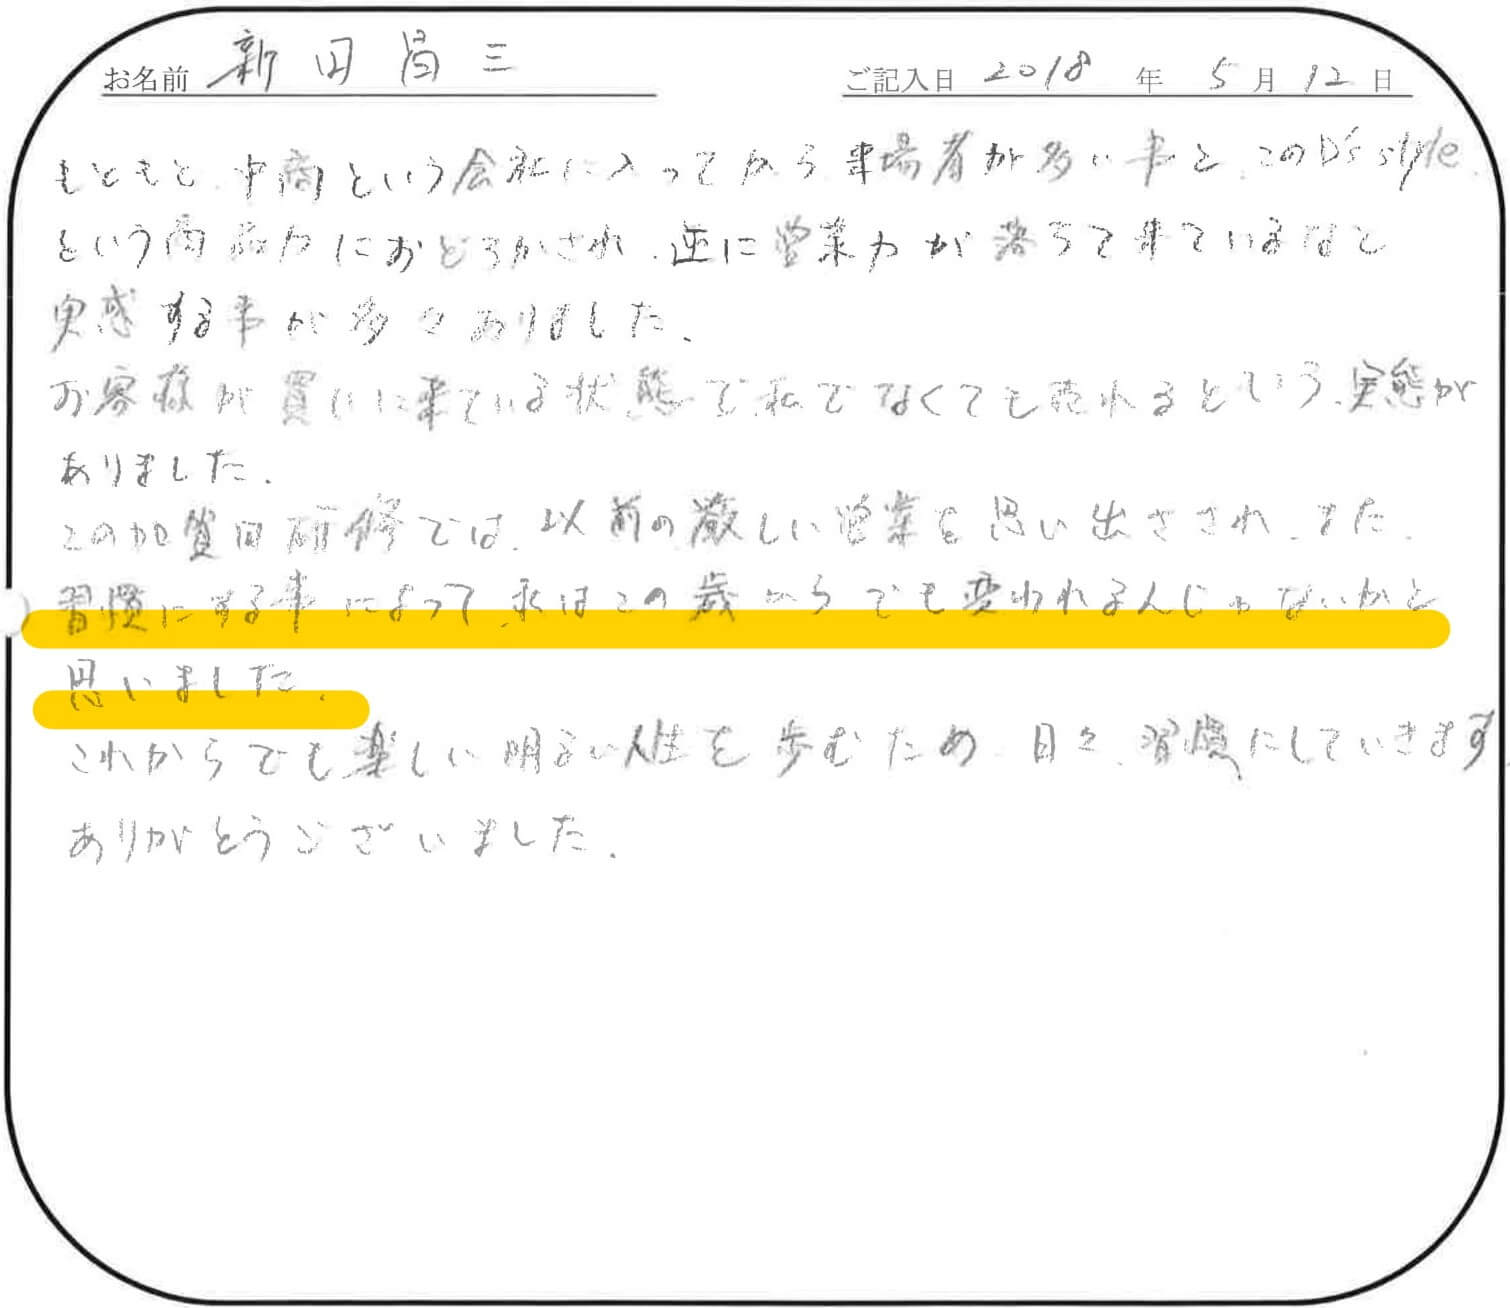 お名前 新田昌三 ご記入日 2018年5月12日
もともと、中商という会社に入ってから来場者が多い事と、このD's style
という商品力におどろかされ、逆に営業力が落ちて来ているなと
実感する事が多々ありました。
お客様が買いに来ている状態で、私でなくても売れるという、実態が
ありました。
この加賀田研修では、以前の厳しい営業を思い出さされ、また、
習慣にする事によって、私はこの歳からでも変われるんじゃないかと
思いました。
これからでも楽しい明るい人生を歩むため、日々、習慣にしていきます。
ありがとうございました。